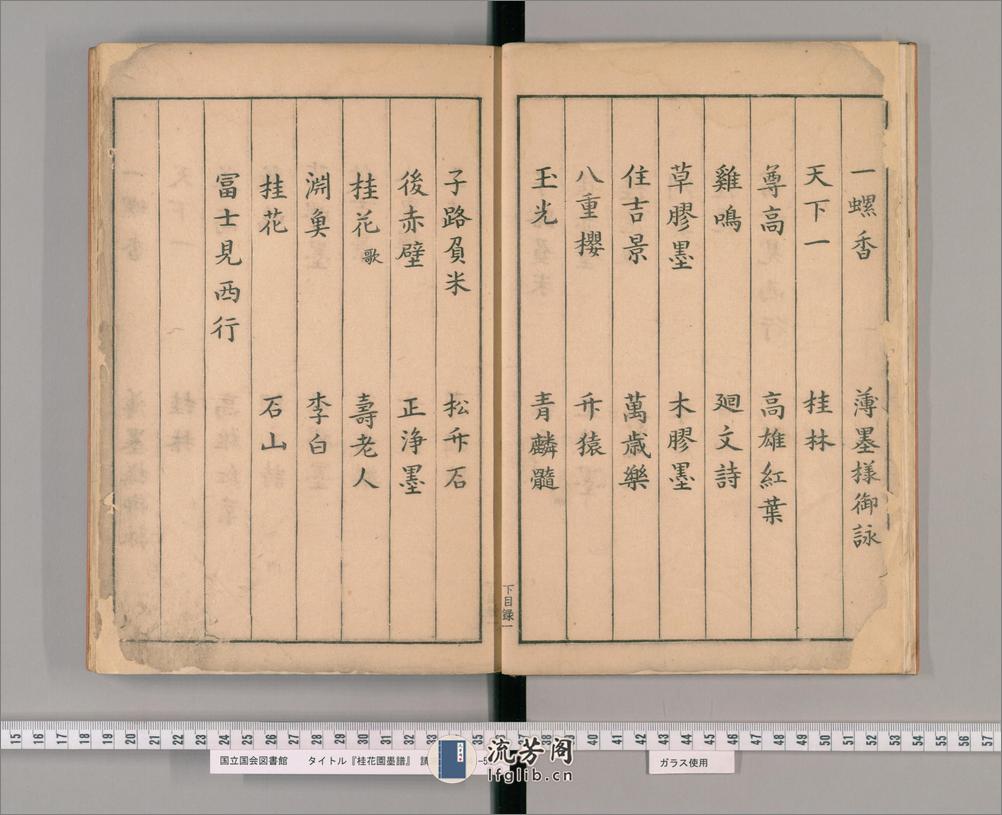 一螺香　薄墨様御詠
天下一　桂林
尊高　高雄紅葉
雞鳴　廻文詩
草膠墨　木膠墨
住吉景　萬歳樂
八重櫻　弁猿
玉光　青麟髓
下目録一
子路負米　松弁石
後赤壁　正浄墨
桂花歌　壽老人
淵奠　李白
桂花　石山
冨士見西行
15 16 17 18 19 20 21 22 23 24 25 26 27 28 29 30 31 32 33 35 40 41 42 43 44 45 46 47 48 49 50 51 52 53 54 55 56 57
国立国会図書館　タイトル『桂花園墨譜』　請
ガラス使用
流芳阁
lfglib.cn